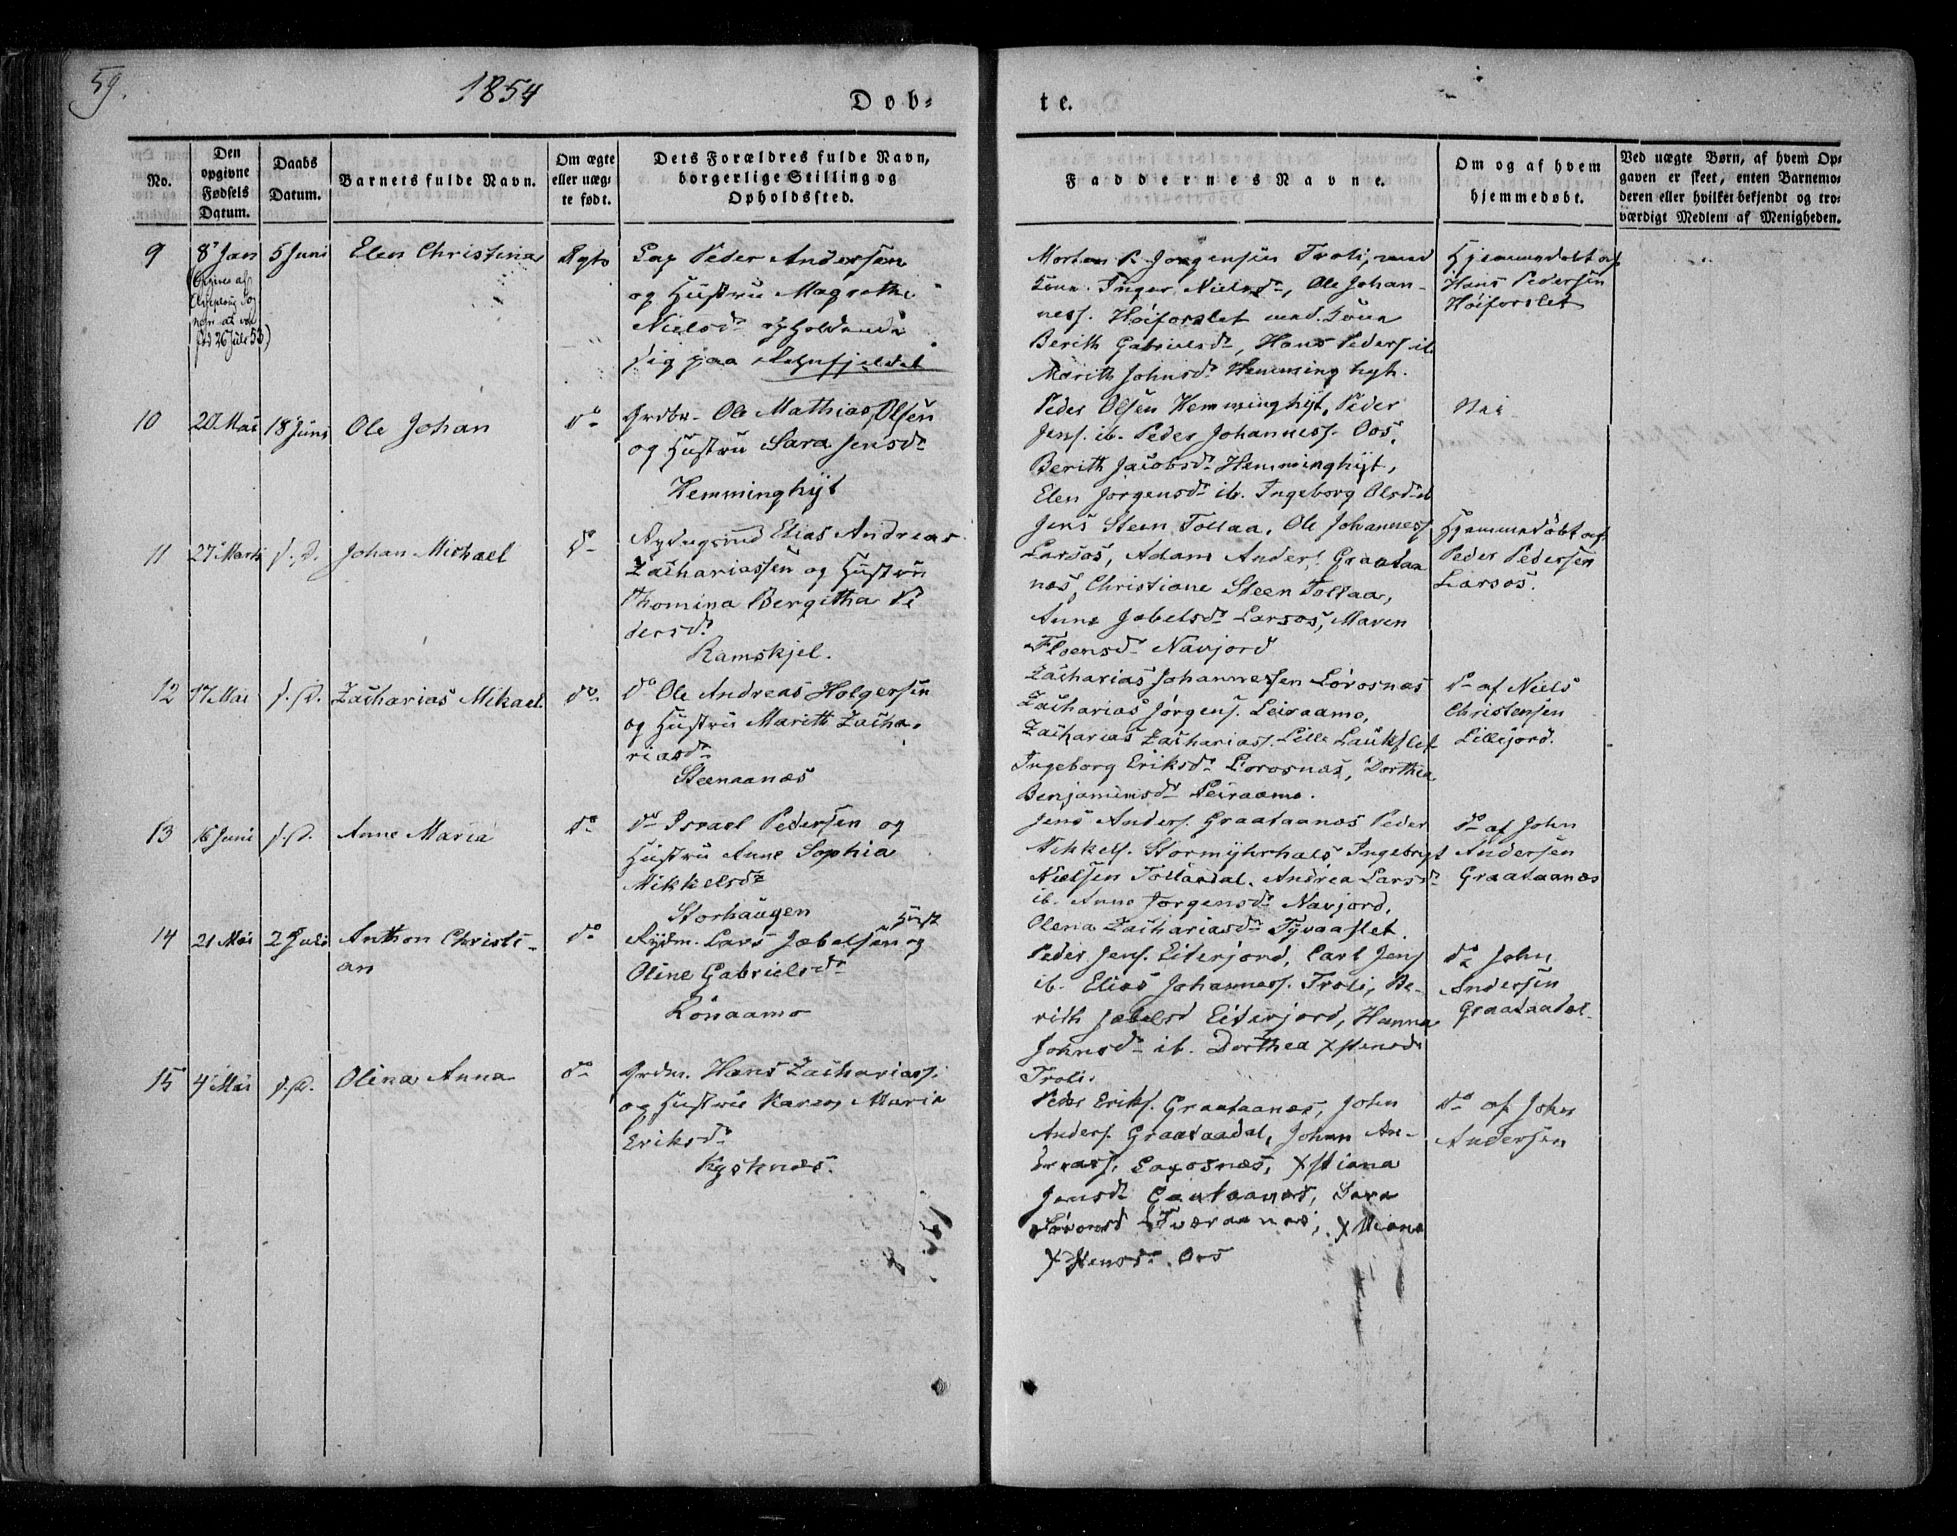 59.
1854
Døb=
te.
No.
Den opgivne Fødsels Datum.
Daabs Datum.
Barnets fulde Navn.
Om ægte eller uæg-te født.
Dets Forældres fulde Navn, borgerlige Stilling og Opholdssted.
Faddernes Navne.
Om og af hvem hjemmedøbt.
Ved uægte Børn, af hvem Op-gaven er skeet, enten Barnemo-deren eller hvilket bekjendt og tro-værdigt Medlem af Menigheden.
9
8 Jan
fød 26 Juli 53)
5 Juni
Elen Christina
Ægte
Lap Peder Andersen
og Hustru Magrethe
Nielsd. opholdende
sig paa
Morten P. Jørgensen Troli, med
Kone Inger Nielsd., Ole Johan-
ness. Høiforslet med Kone
Berith Gabrielsd., Hans Peders. ib.
Marith Johnsd. Hemminghyt.
Hjemmedøbt af
Hans Pedersen
Høiforslet
10
20 Mai
18 Juni
Ole Johan
do
Grdbr. Ole Mathias Olsen
og Hustru Sara Jensd.
Hemminghyt
Peder Olsen Hemminghyt, Peder
Jens. ib. Peder Johanness. Oos,
Berith Jacobsd. Hemminghyt,
Elen Jørgensd. ib. Ingeborg Olsd. ib
Nei
11
27 Marts
s. D.
Johan Michael
do
Rydngsmd Elias Andreas
Zachariassen og Hustru
Thomina Bergitha Pe
dersd.
Ramskjel.
Jens Steen Tollaa, Ole Johanness.
Larsos, Adam Anders. Graataa
næs, Christiane Steen Tollaa,
Anne Jobelsd. Larsos, Maren
Floensd. Navjord
Hjemmedøbt af
Peder Pedersen
Larsos.
12
17 Mai
s. D.
Zacharias Mikael
do
do Ole Andreas Holgersen
og Hustru Marith Zacha-
riasd.
Steenaanæs
Zacharias Johannesen Lorosnæs
Zacharias Jørgens. Leiraamo,
Zacharias Zachariass. Lille Laukslet
Ingeborg Eriksd. Lorosnæs, Dorthea
Benjaminsd. Leiraamo.
do af Niels
Christensen
Lillejord.
13
16 Juni
s. D.
Anne Maria
do
do Israel Pedersen og
Hustru Anne Sophia
Mikkelsd.
Storhaugen
Jens Anders. Graataanæs Peder
Mikkels. Stormyhrhals Ingebrigt
Nielsen Tollaadal. Andrea Larsd.
ib. Anne Jørgensd. Navjord,
Olena Zachariasd. Tvaaslet.
do af John
Andersen
Graataanæs
14
21 Mai
2 Juli
Anthon Christi-
an
do
Rydm. Lars Jobelsen og Hust
Oline Gabrielsd.
Rønaamo
Peder Jens. Eiterjord, Carl Jens.
ib. Elias Johanness. Troli, Be-
rith Jobelsd Eiterjord, Hanna
Johnsd. ib. Dorthea Xstensd.
Troli.
do John
Andersen
Graataadal
15
4 Mai
s. D.
Olina Anna
do
Grdm. Hans Zachariass.
og Hustru Karen Maria
Eriksd.
Peder Eriks. Graataanæs, John
Anders. Graataadal, Johan An-
dreass. Larosnæs, Xstiana
Jensd. Graataanæs, Sara
Tværaanæs, Xstiana
Xstensd. Oos
do af John
Andersen